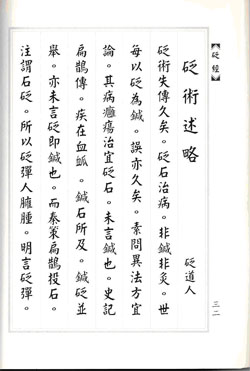 砭經
三二
砭術述略
砭道人
砭術失傳久矣。砭石治病。非鍼非灸。世
每以砭為鍼。誤亦久矣。素問異法方宜
論。其病癰瘍治宜砭石。未言鍼也。史記
扁鵲傳。疾在血衇。鍼石所及。鍼砭並
舉。亦未言砭即鍼也。而秦策扁鵲投石。
注謂石砭。所以砭彈人臃腫。明言砭彈。